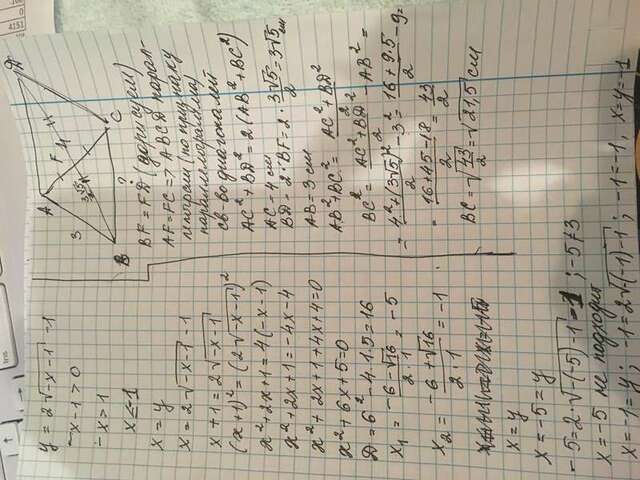 y = 2√-x-1 -1
-x-1 > 0
-x > 1
x ≤ -1
x = y
x = 2√-x-1 -1
x + 1 = 2√-x-1
(x+1)² = (2√-x-1)²
x² + 2x + 1 = 4(-x-1)
x² + 2x + 1 = -4x - 4
x² + 2x + 1 + 4x + 4 = 0
x² + 6x + 5 = 0
D = 6² - 4·1·5 = 16
x₁ = (-6 - √16)/(2·1) = -5
x₂ = (-6 + √16)/(2·1) = -1
x = y
x = -5 = y
-5 = 2·√-(-5)-1 -1 ; -5 ≠ 3
x = -5 не подходит
x = -1 = y ; -1 = 2√-(-1)-1 ; -1 = -1, x = y = -1
A
D
F
4
3
3√5/2
B
?
C
BF = FD (дорисуем)
AF = FC => ABCD парал-
лелограмм (по признаку
параллелограмма)
св-во диагоналей
AC² + BD² = 2(AB² + BC²)
AC = 4 см
BD = 2·BF = 2·3√5/2 = 3√5 см
AB = 3 см
AB² + BC² = (AC² + BD²)/2
BC² = (AC² + BD²)/2 - AB² =
= (4² + (3√5)²)/2 - 3² = (16 + 9·5)/2 - 9 =
= (16 + 45 - 18)/2 = 43/2
BC = √43/2 = √21,5 см